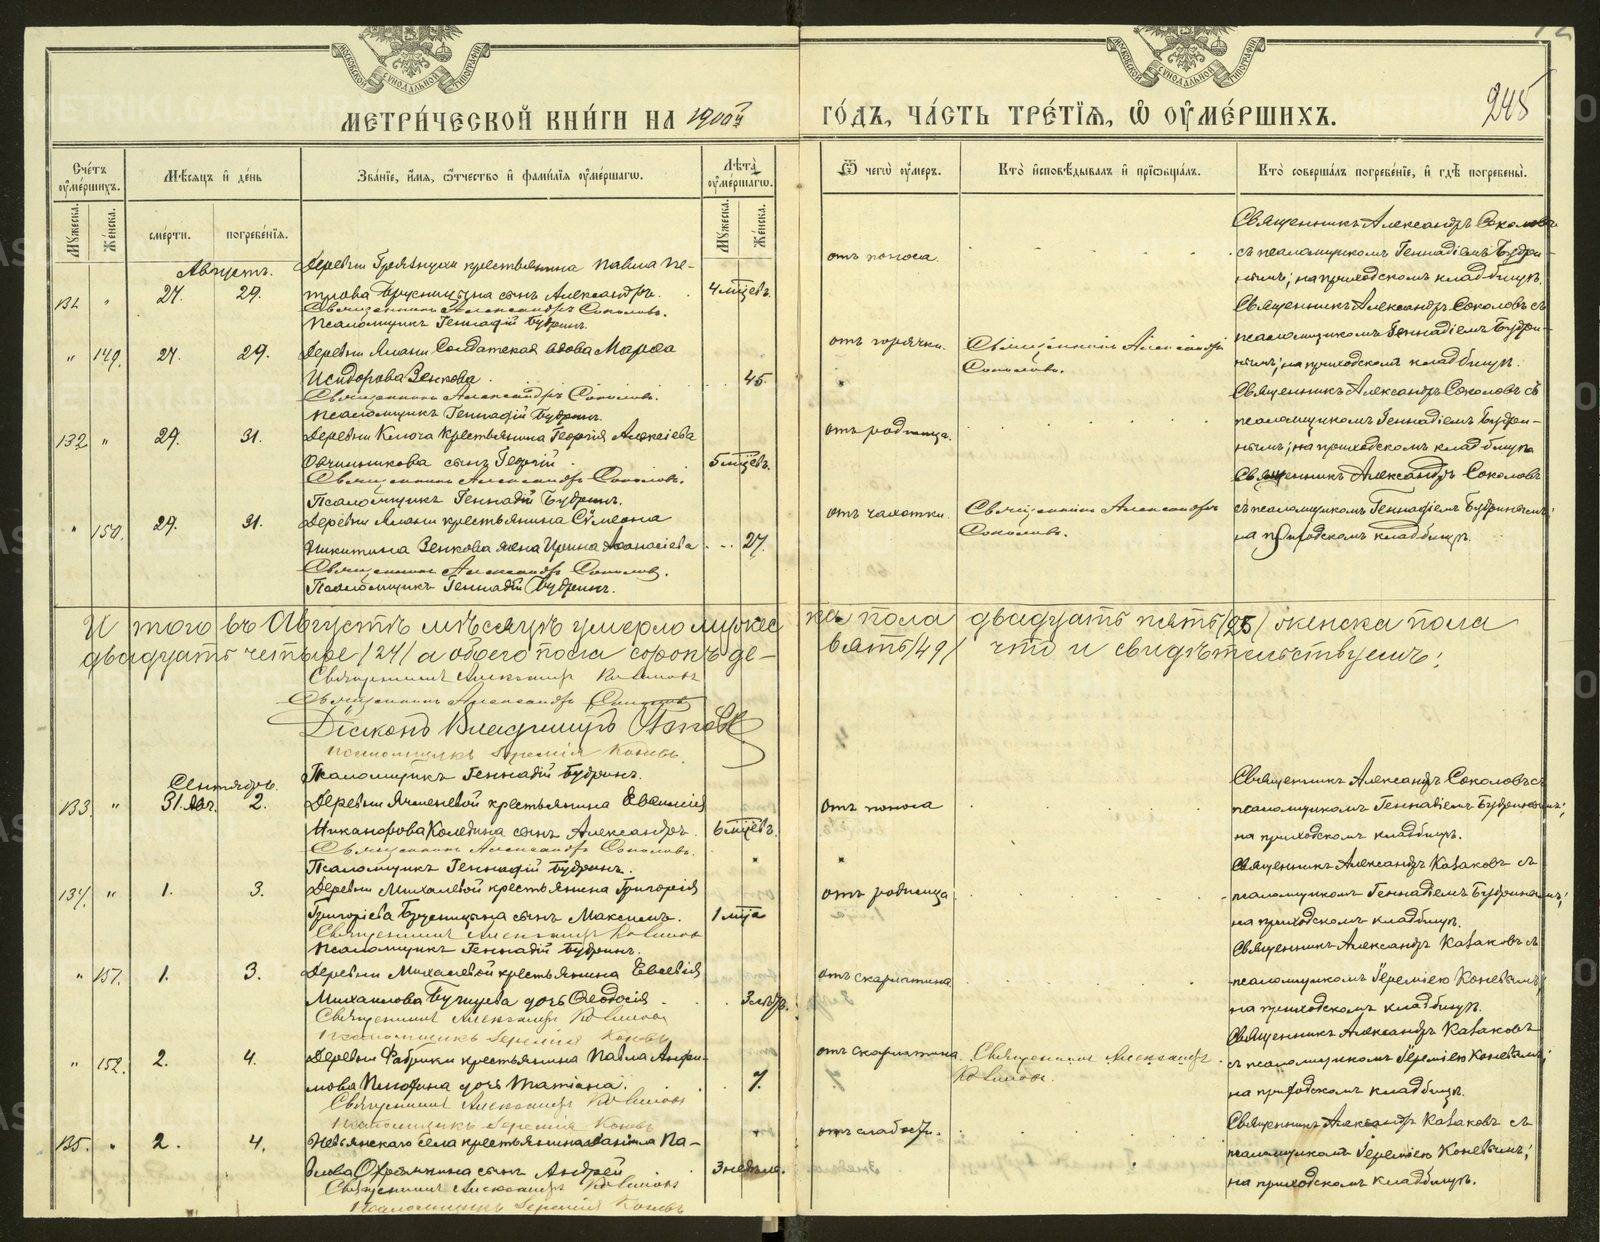 МОСКОВСКОЙ СѴНОДАЛЬНОЙ ТИПОГРАФІИ
МОСКОВСКОЙ СѴНОДАЛЬНОЙ ТИПОГРАФІИ
МЕТРИ́ЧЕСКОЙ КНИ́ГИ НА 1900й ГО́ДЪ, ЧА́СТЬ ТРЕ́ТІѦ, Ѡ҆ ОУ҆МЕ́РШИХЪ.
245
Сче́тъ оу҆ме́ршихъ.
Мѣ́сѧцъ и҆ де́нь
Зва́нїе, и҆́мѧ, ѻ҆́тчество и҆ фами́лїѧ оу҆ме́ршагѡ.
Лѣ́та оу҆ме́ршагѡ.
Ѿ чегѡ̀ оу҆́меръ.
Кто̀ и҆сповѣ́дывалъ и҆ прїѡбща́лъ.
Кто̀ соверша́лъ погребе́нїе, и҆ гдѣ̀ погребены̀.
Мꙋ́жеска. Же́нска. сме́рти. погребе́нїѧ. Мꙋ́жеска. Же́нска.
Августъ.
131. " 27. 29.
Деревни Грязнухи крестьянина Павла Пе-
трова Брусницына сынъ Александръ. 4 мцевъ.
Священникъ Александръ Соколовъ.
Псаломщикъ Геннадій Будринъ.
отъ поноса.
Священникъ Александръ Соколовъ
съ псаломщикомъ Геннадіемъ Будри-
нымъ; на приходскомъ кладбищѣ.
" 149. 27. 29.
Деревни Ялани Солдатская вдова Марѳа
Исидорова Зенкова. 45.
Священникъ Александръ Соколовъ.
Псаломщикъ Геннадій Будринъ.
отъ горячки.
Священникъ Александръ
Соколовъ.
Священникъ Александръ Соколовъ съ
псаломщикомъ Геннадіемъ Будри-
нымъ; на приходскомъ кладбищѣ.
132. " 29. 31.
Деревни Ключа крестьянина Георгія Алексіева
Овчинникова сынъ Георгій. 5 мцевъ.
Священникъ Александръ Соколовъ.
Псаломщикъ Геннадій Будринъ.
отъ родимца.
Священникъ Александръ Соколовъ съ
псаломщикомъ Геннадіемъ Будри-
нымъ; на приходскомъ кладбищѣ.
" 150. 29. 31.
Деревни Ялани крестьянина Сѵмеона
Никитина Зенкова жена Ирина Аѳанасіева 27.
Священникъ Александръ Соколовъ.
Псаломщикъ Геннадій Будринъ.
отъ чахотки.
Священникъ Александръ
Соколовъ.
Священникъ Александръ Соколовъ
съ псаломщикомъ Геннадіемъ Будринымъ;
на приходскомъ кладбищѣ.
И того въ Августѣ мѣсяцѣ умерло мужес ка пола двадцать пять /25/ женска пола
двадцать четыре /24/ а обоего пола сорокъ де- вять /49/ что и свидѣтельствуемъ:
Священникъ Александръ Казаковъ
Священникъ Александръ Соколовъ
Діаконъ Владимиръ Поповъ
псаломщикъ Іеремія Коневъ.
Псаломщикъ Геннадій Будринъ.
Сентябрь.
133. " 31. Авг. 2.
Деревни Ячменевой крестьянина Евѳимія
Никанорова Колядина сынъ Александръ. 6 мцевъ.
Священникъ Александръ Соколовъ.
Псаломщикъ Геннадій Будринъ.
отъ поноса
Священникъ Александръ Соколовъ съ
псаломщикомъ Геннадіемъ Будринымъ;
на приходскомъ кладбищѣ.
134. " 1. 3.
Деревни Михалевой крестьянина Григорія
Григоріева Брусницына сынъ Максимъ. 1 мца
Священникъ Александръ Казаковъ
Псаломщикъ Геннадій Будринъ.
отъ родимца.
Священникъ Александръ Казаковъ съ
псаломщикомъ Геннадіемъ Будринымъ;
на приходскомъ кладбищѣ.
" 151. 1. 3.
Деревни Михалевой крестьянина Евсевія
Михаилова дочь Ѳеодосія.
Священникъ Александръ Казаковъ
псаломщикъ Іеремія Коневъ
отъ скарлатина.
Священникъ Александръ Казаковъ съ
псаломщикомъ Іереміею Коневымъ;
на приходскомъ кладбищѣ.
" 152. 2. 4.
Деревни Фабрики крестьянина Павла Анфи-
мова дочь Татіана. 7.
Священникъ Александръ Казаковъ
псаломщикъ Іеремія Коневъ
отъ скарлатина.
Священникъ Александръ
Казаковъ.
Священникъ Александръ Казаковъ
съ псаломщикомъ Іереміею Коневымъ;
на приходскомъ кладбищѣ.
135. " 2. 4.
Невьянскаго села крестьянина Даніила Па-
влова сынъ Андрей. 3 недѣли.
Священникъ Александръ Казаковъ
псаломщикъ Іеремія Коневъ
отъ слабости.
Священникъ Александръ Казаковъ съ
псаломщикомъ Іереміею Коневымъ;
на приходскомъ кладбищѣ.